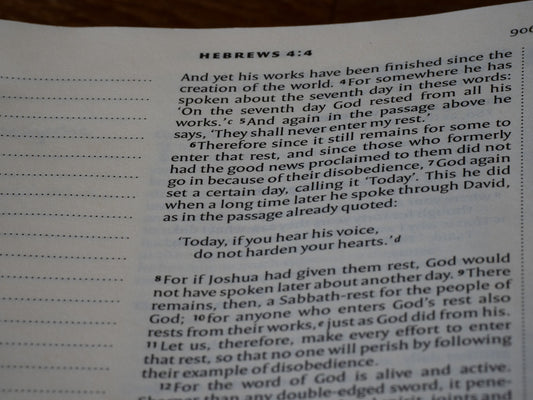 906
HEBREWS 4:4
And yet his works have been finished since the
creation of the world. 4For somewhere he has
spoken about the seventh day in these words:
'On the seventh day God rested from all his
works.'c 5And again in the passage above he
says, 'They shall never enter my rest.'
6Therefore since it still remains for some to
enter that rest, and since those who formerly
had the good news proclaimed to them did not
go in because of their disobedience, 7God again
set a certain day, calling it 'Today'. This he did
when a long time later he spoke through David,
as in the passage already quoted:
'Today, if you hear his voice,
do not harden your hearts.'d
8For if Joshua had given them rest, God would
not have spoken later about another day. 9There
remains, then, a Sabbath-rest for the people of
God; 10for anyone who enters God's rest also
rests from their works,e just as God did from his.
11Let us, therefore, make every effort to enter
that rest, so that no one will perish by following
their example of disobedience.
12For the word of God is alive and active.
Sharper than any double-edged sword, it pene-
joints and